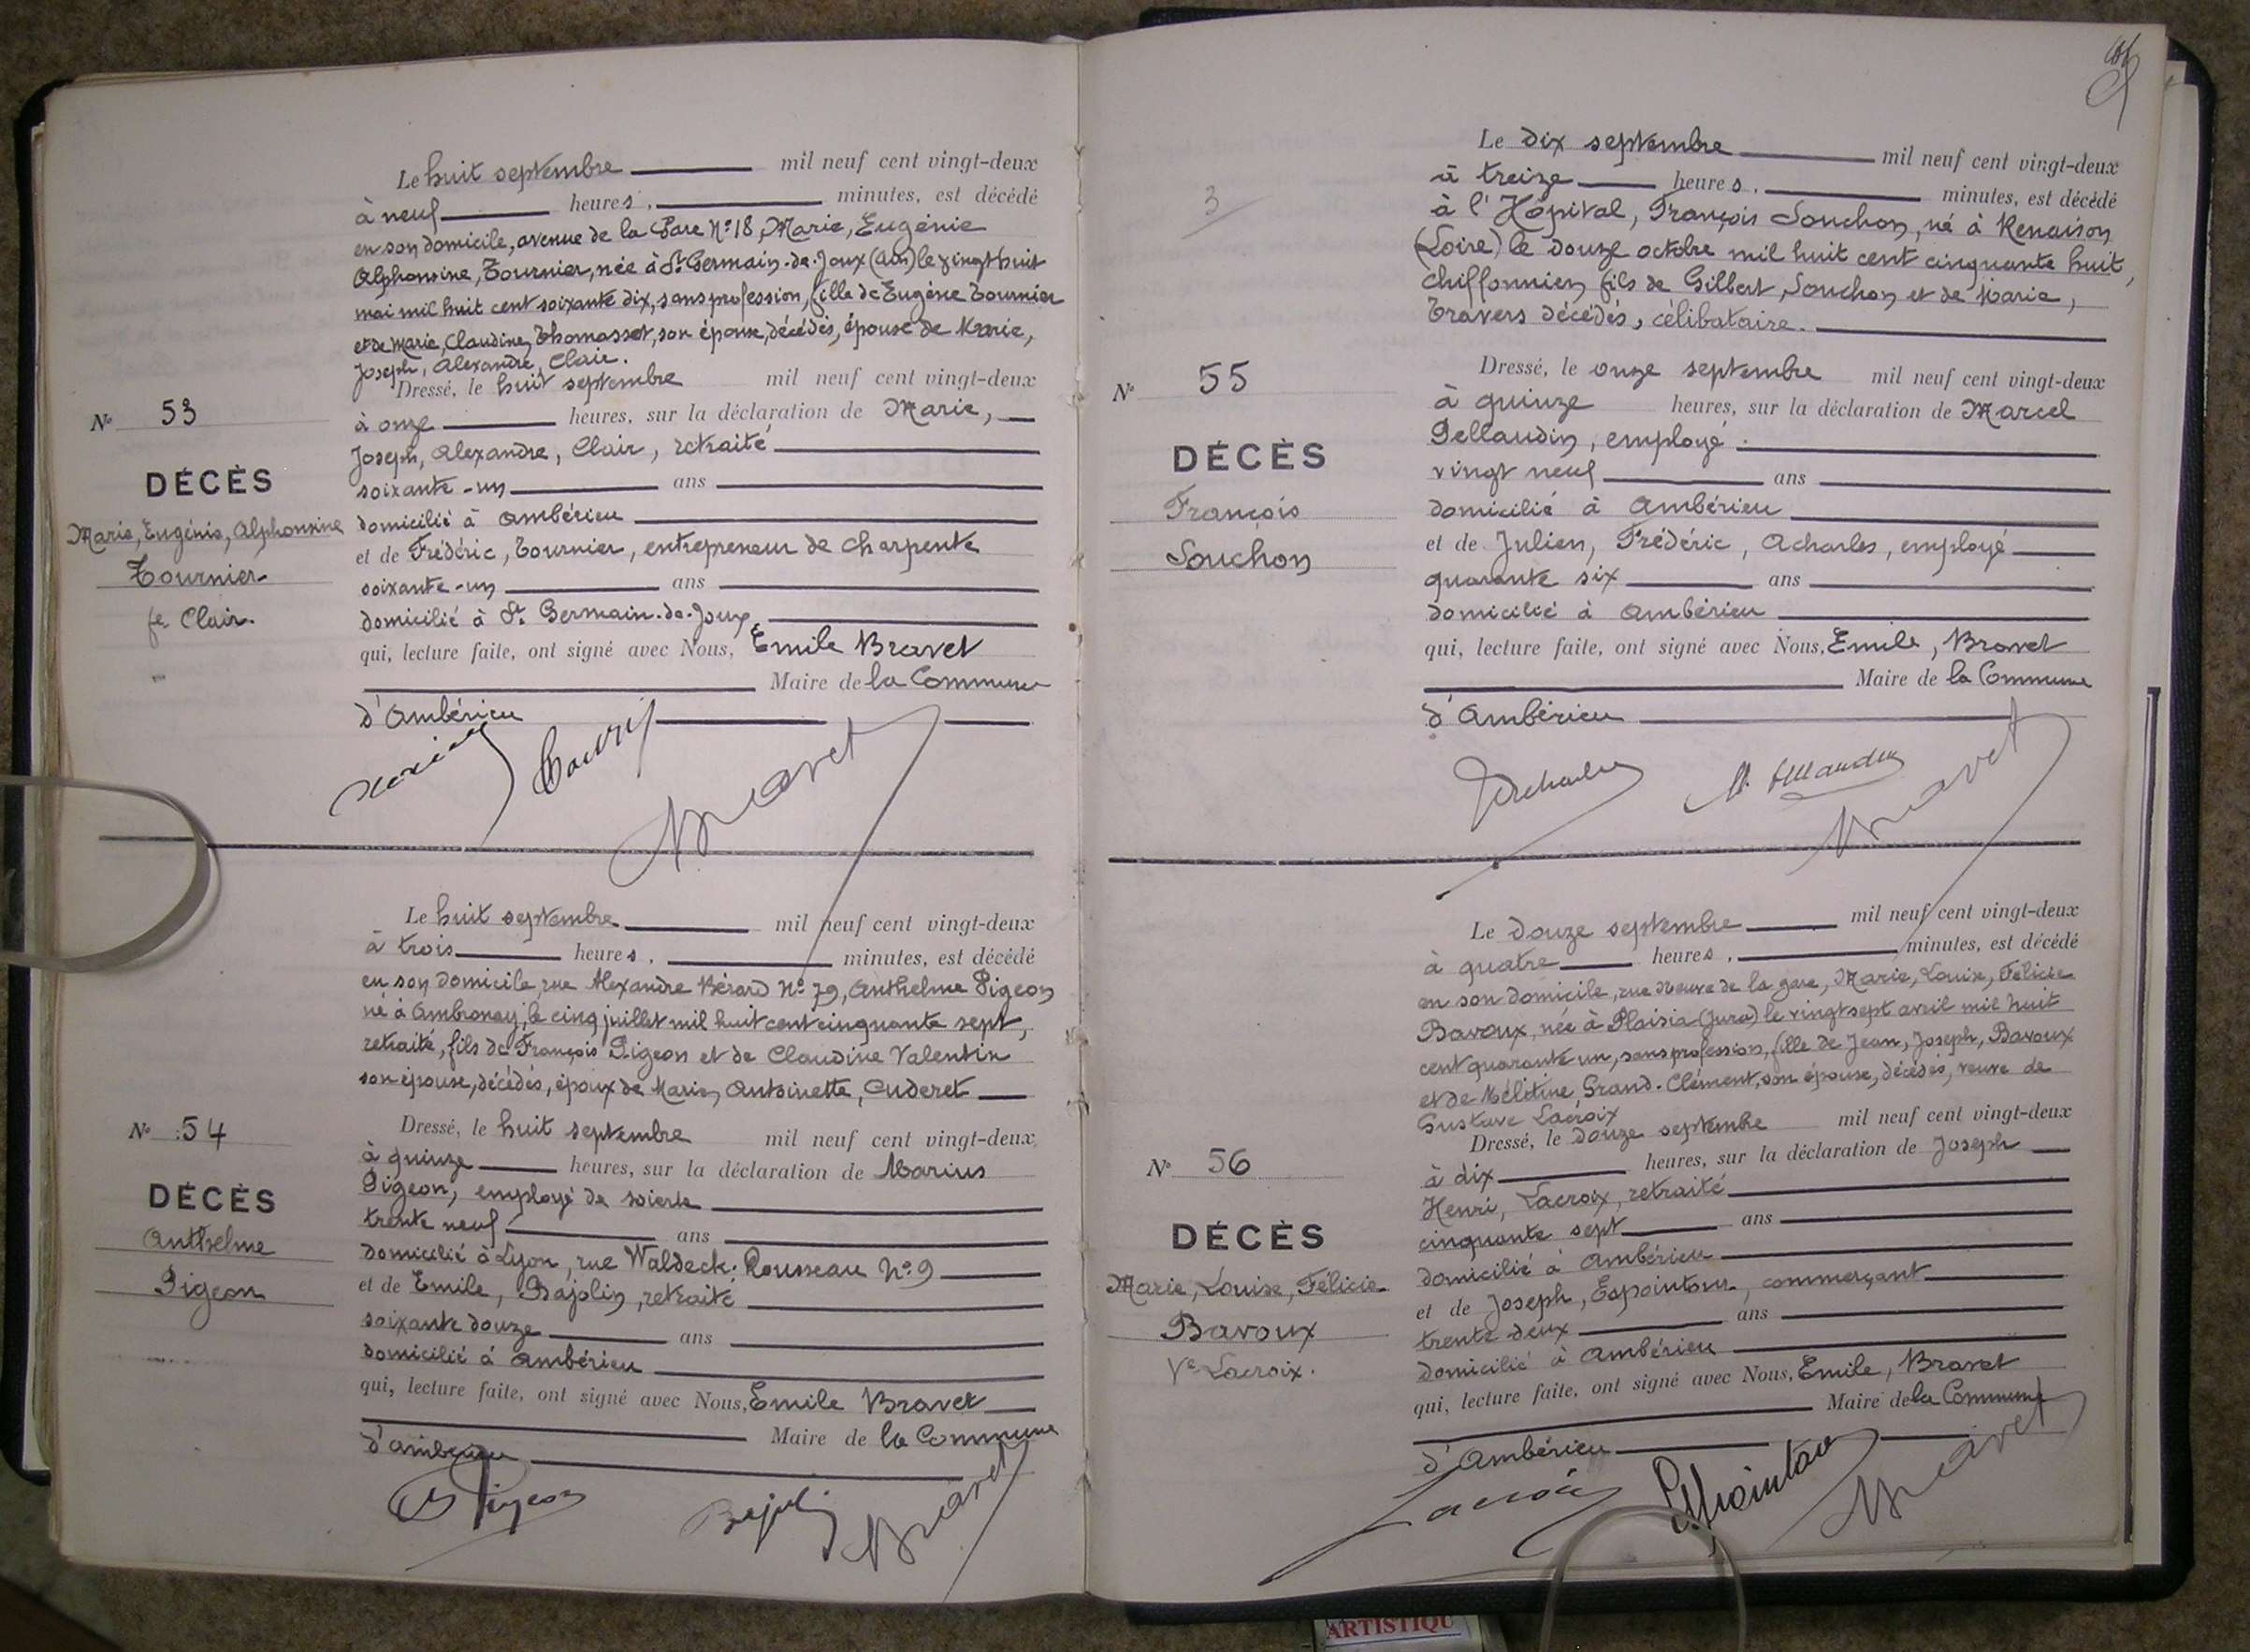 Le huit septembre mil neuf cent vingt-deux
à neuf heures, minutes, est décédé
en son domicile, avenue de la Gare No 18, Marie, Eugénie
Alphonsine, Tournier, née à St Germain-de-Joux (Ain) le vingt huit
mai mil huit cent soixante dix, sans profession, fille de Eugène Tournier
et de Marie, Claudine, Thomasset, son épouse, décédés, épouse de Marie,
Joseph, Alexandre, Clair.
Dressé, le huit septembre mil neuf cent vingt-deux
No 53
à onze heures, sur la déclaration de Marie,
Joseph, Alexandre, Clair, retraité
DÉCÈS
soixante-un ans
Marie, Eugénie, Alphonsine
domicilié à Ambérieu
et de Frédéric, Tournier, entrepreneur de charpente
Tournier
soixante-un ans
fe Clair.
domicilié à St Germain-de-Joux,
qui, lecture faite, ont signé avec Nous, Emile Bravet
Maire de la Commune
d'Ambérieu
Bravet
Le huit septembre mil neuf cent vingt-deux
à trois heures, minutes, est décédé
en son domicile, rue Alexandre Bérard No 79, Anthelme Pigeon
né à Ambronay, le cinq juillet mil huit cent cinquante sept,
retraité, fils de François Pigeon et de Claudine Valentin
son épouse, décédés, époux de Marie, Antoinette, Cuderet
No 54
Dressé, le huit septembre mil neuf cent vingt-deux
à quinze heures, sur la déclaration de Marius
Pigeon, employé de soierie
DÉCÈS
trente neuf ans
Anthelme
domicilié à Lyon, rue Waldeck-Rousseau No 9
Pigeon
et de Emile, Bajolin, retraité
soixante douze ans
domicilié à Ambérieu
qui, lecture faite, ont signé avec Nous, Emile Bravet
Maire de la Commune
d'Ambérieu
M Pigeon Bajolin Bravet
3
Le dix septembre mil neuf cent vingt-deux
à treize heures, minutes, est décédé
à l'Hôpital, François Souchon, né à Renaison
(Loire) le douze octobre mil huit cent cinquante huit,
chiffonnier, fils de Gilbert, Souchon et de Marie,
Travers décédés, célibataire.
No 55
Dressé, le onze septembre mil neuf cent vingt-deux
à quinze heures, sur la déclaration de Marcel
Pellaudin, employé.
DÉCÈS
vingt neuf ans
François
domicilié à Ambérieu
Souchon
et de Julien, Frédéric, Acharles, employé
quarante six ans
domicilié à Ambérieu
qui, lecture faite, ont signé avec Nous, Emile, Bravet
Maire de la Commune
d'Ambérieu
Bravet
Le douze septembre mil neuf cent vingt-deux
à quatre heures, minutes, est décédé
en son domicile, rue Neuve de la gare, Marie, Louise, Félicie
Bavoux, née à Plaisia (Jura) le vingt sept avril mil huit
cent quarante un, sans profession, fille de Jean, Joseph, Bavoux
et de Mélitine, Grand-Clément, son épouse, décédés, veuve de
Gustave Lacroix
No 56
Dressé, le douze septembre mil neuf cent vingt-deux
à dix heures, sur la déclaration de Joseph
Henri, Lacroix, retraité
DÉCÈS
cinquante sept ans
Marie, Louise, Félicie
domicilié à Ambérieu
Bavoux
et de Joseph, Espointour, commerçant
trente deux ans
Ve Lacroix.
domicilié à Ambérieu
qui, lecture faite, ont signé avec Nous, Emile, Bravet
Maire de la Commune
d'Ambérieu
Lacroix Bravet
ARTISTIQU